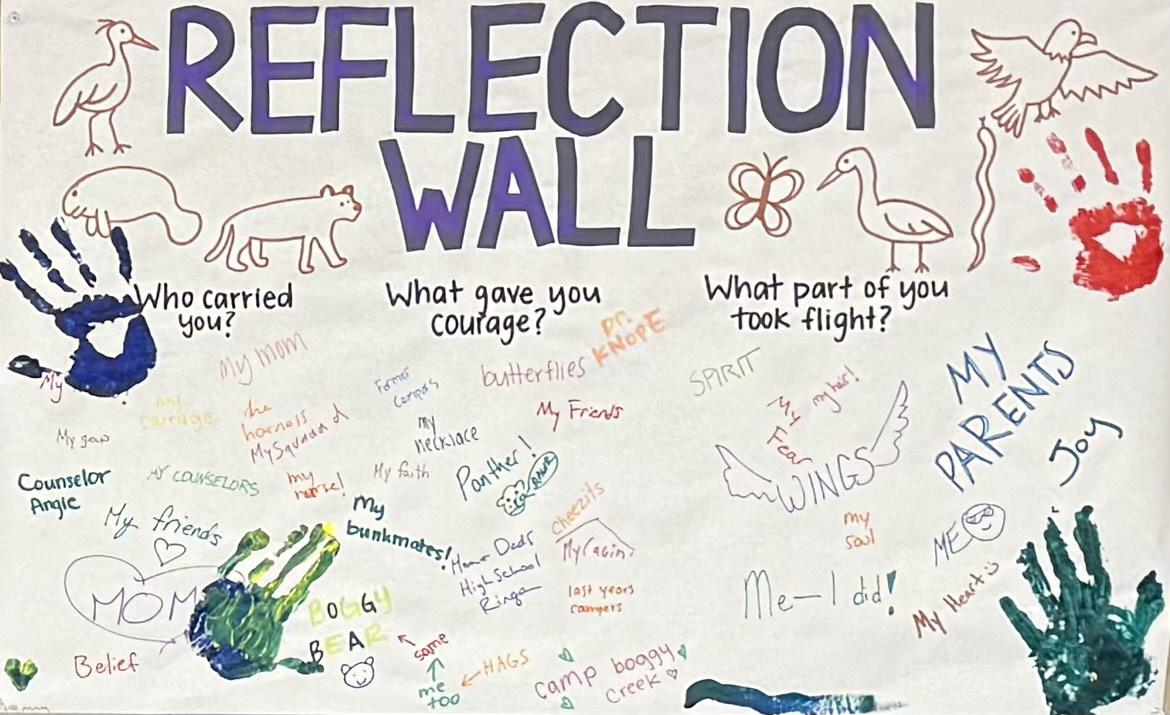 REFLECTION
WALL
Who carried
you?
My mom
My
my
courage
the
harness
My Squad
My
Counselor
Angie
MY COUNSELORS
my
nurse!
My friends
My
bunkmates!
MOM
BOGGY
BEAR
same
me
too
HAGS
Belief
What gave you
courage?
Dr.
KNOPE
butterflies
Former
campers
My Friends
my
necklace
My faith
Panther!
cheezits
My cabin!
Dads
High School
Ring
last years
campers
camp boggy
creek
What part of you
took flight?
SPIRIT
My
Fear
my her!
WINGS
MY
PARENTS
Joy
my
soul
ME
Me—I did!
My Heart